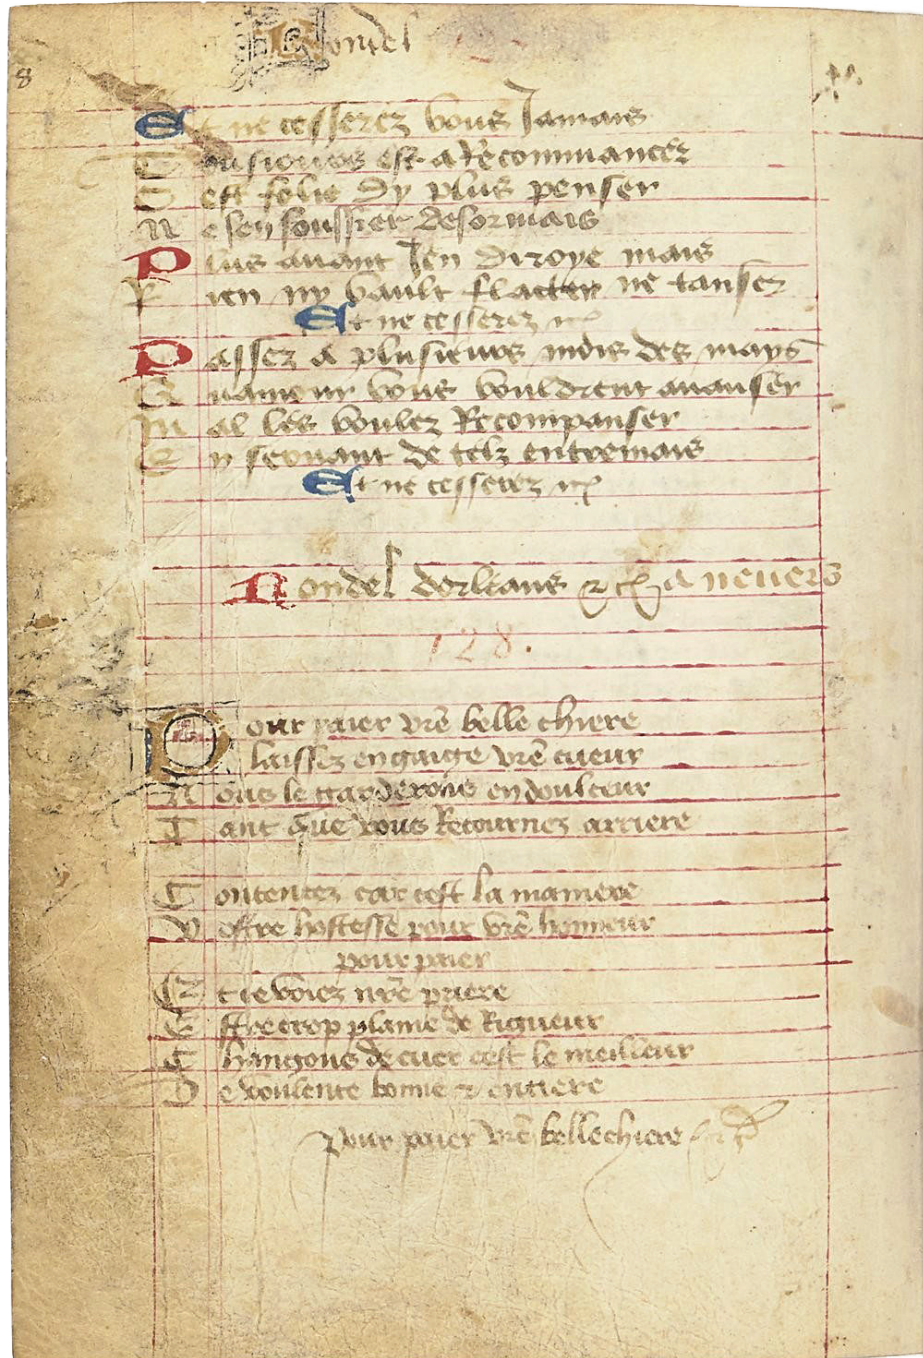 8
Rondel
Et ne cesserez vous Jamais
Tousiours est a Recommancer
C est folie dy plus penser
N e sen soussier desormais
P lus auant Jen diroye mais
R ien ny vault flacter ne tanser
Et ne cesserez &c
P assez a plusieurs mois des mays
Q uamour vous vouldrent auanser
M al les voulez Recompanser
E n seruant de telz entremais
Et ne cesserez &c
Rondel dorleans & &c a neuers
128.
P our paier vre belle chiere
laissez en gaige vre cueur
N ous le garderons en doulceur
T ant que vous Retournez arriere
C ontentez car cest la maniere
V ostre hostesse pour vre honneur
pour paier
E t se voiez nre priere
E stre trop plaine de Rigueur
C hangons de cuer cest le meilleur
D e voulente bonne & entiere
Pour paier vre belle chiere &c